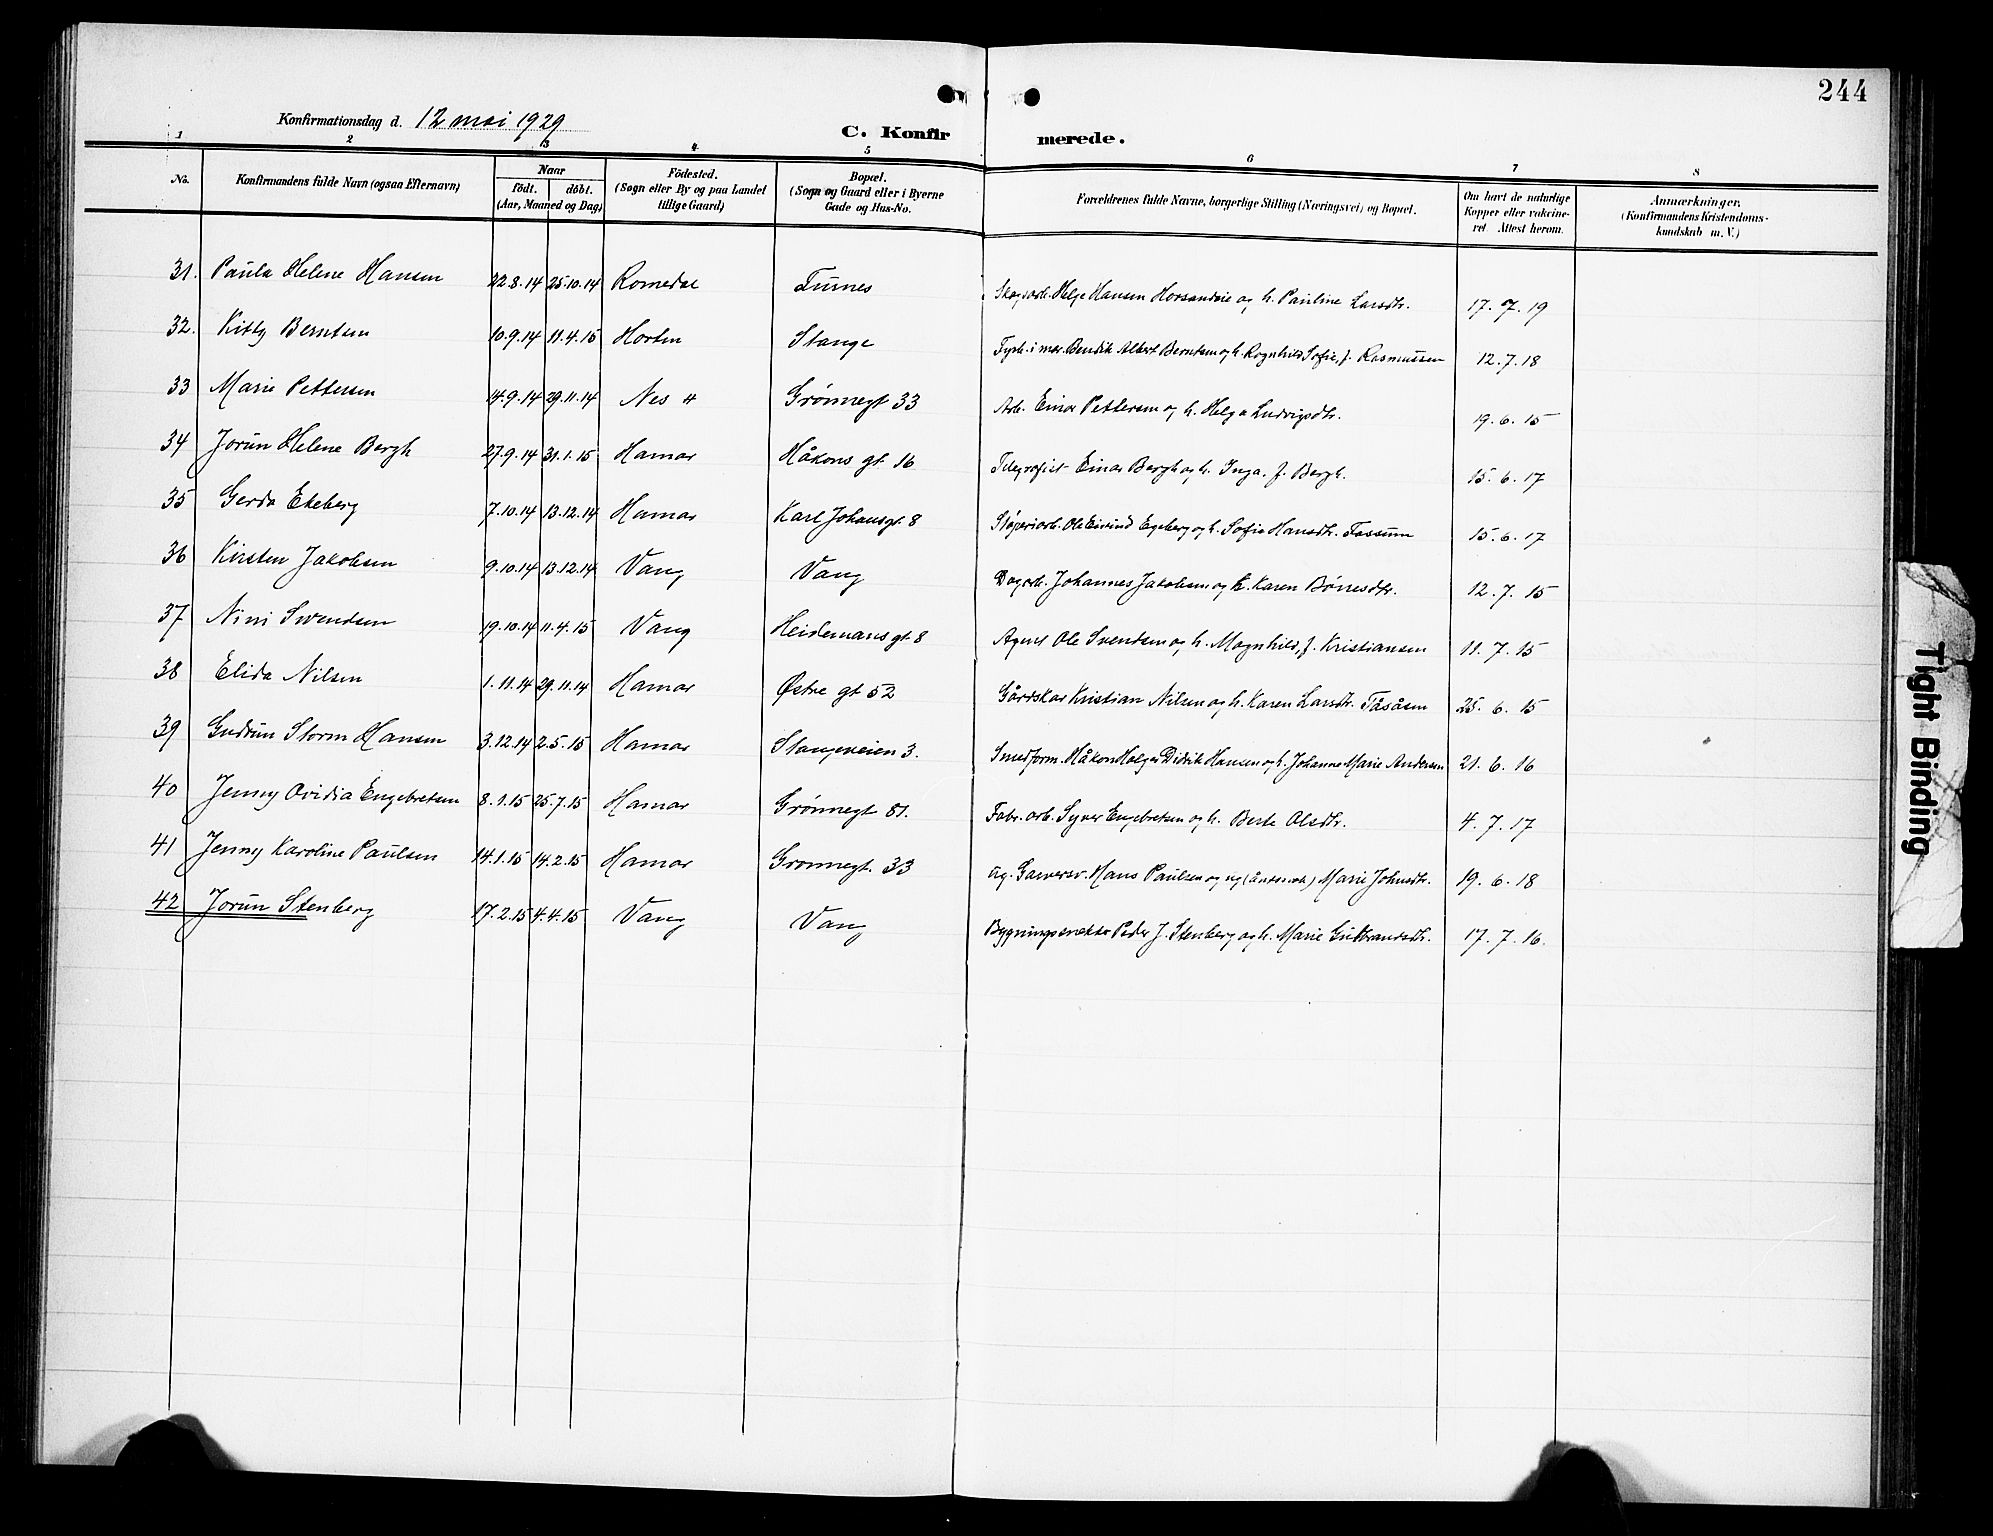 244
Konfirmationsdag d. 12 mai 1929
C. Konfirmerede.
1 2 3 4 5 6 7 8
No. Konfirmandens fulde Navn (ogsaa Efternavn) Naar födt. döbt. (Aar, Maaned og Dag) Födested. (Sogn eller By og paa Landet tillige Gaard) Bopæl. (Sogn og Gaard eller i Byerne Gade og Hus-No. Forældrenes fulde Navne, borgerlige Stilling (Næringsvei) og Bopæl. Om havt de naturlige Kopper eller vakcineret. Attest herom. Anmærkninger. (Konfirmandens Kristendomskundskab m. V.)
31. Paula Helene Hansen 22.8.14 25.10.14 Romedal Furnes Skogsarb. Helge Hansen Horsandvie og h. Pauline Larsdtr. 17.7.19
32. Kitty Berntsen 10.9.14 11.4.15 Horten Stange Fyrb. i mar. Bendik Albert Berntsen og h. Ragnhild Sofie, f. Rasmussen 12.7.18
33 Marie Pettersen 14.9.14 29.11.14 Nes H Grönnegt 33 Arb. Einar Pettersen og h. Helga Ludvigsdtr. 19.6.15
34 Jorun Helene Bergh 27.9.14 31.1.15 Hamar Håkons gt 16 Telegrafist Einar Bergh og h. Inga. f. Bergh. 15.6.17
35 Gerda Ekeberg 7.10.14 13.12.14 Hamar Karl Johansgt 8 Støperiarb. Ole Eivind Egeberg og h. Sofie Hansdtr. Fossum 15.6.17
36 Kirsten Jakobsen 9.10.14 13.12.14 Vang Vang Dagarb. Johannes Jakobsen og h. Karen Börresdtr. 12.7.15
37 Nini Svendsen 19.10.14 11.4.15 Vang Heidemans gt 8 Agent Ole Svendsen og h. Magnhild, f. Kristiansen 11.7.15
38 Elida Nilsen 1.11.14 29.11.14 Hamar Østre gt 52 Gårdskar Kristian Nilsen og h. Karen Larsdtr. Tåsåsen 25.6.15
39 Gudrun Storm Hansen 3.12.14 2.5.15 Hamar Stangeveien 3. Smedform. Håkon Holger Didrik Hansen og h. Johanne Marie Andersen 21.6.16
40 Jenny Ovidia Engebretsen 8.1.15 25.7.15 Hamar Grönnegt 81. Fabr. arb. Syver Engebretsen og h. Berte Olsdtr. 4.7.17
41 Jenny Karoline Paulsen 14.1.15 14.2.15 Hamar Grönnegt. 33 ug. Garversv. Hans Paulsen og ug Marie Johnsdtr. 19.6.18
42 Jorun Stenberg 17.2.15 4.4.15 Vang Vang Peder J. Stenberg og h. Marie Gulbrandsdtr. 17.7.16.
Tight Binding